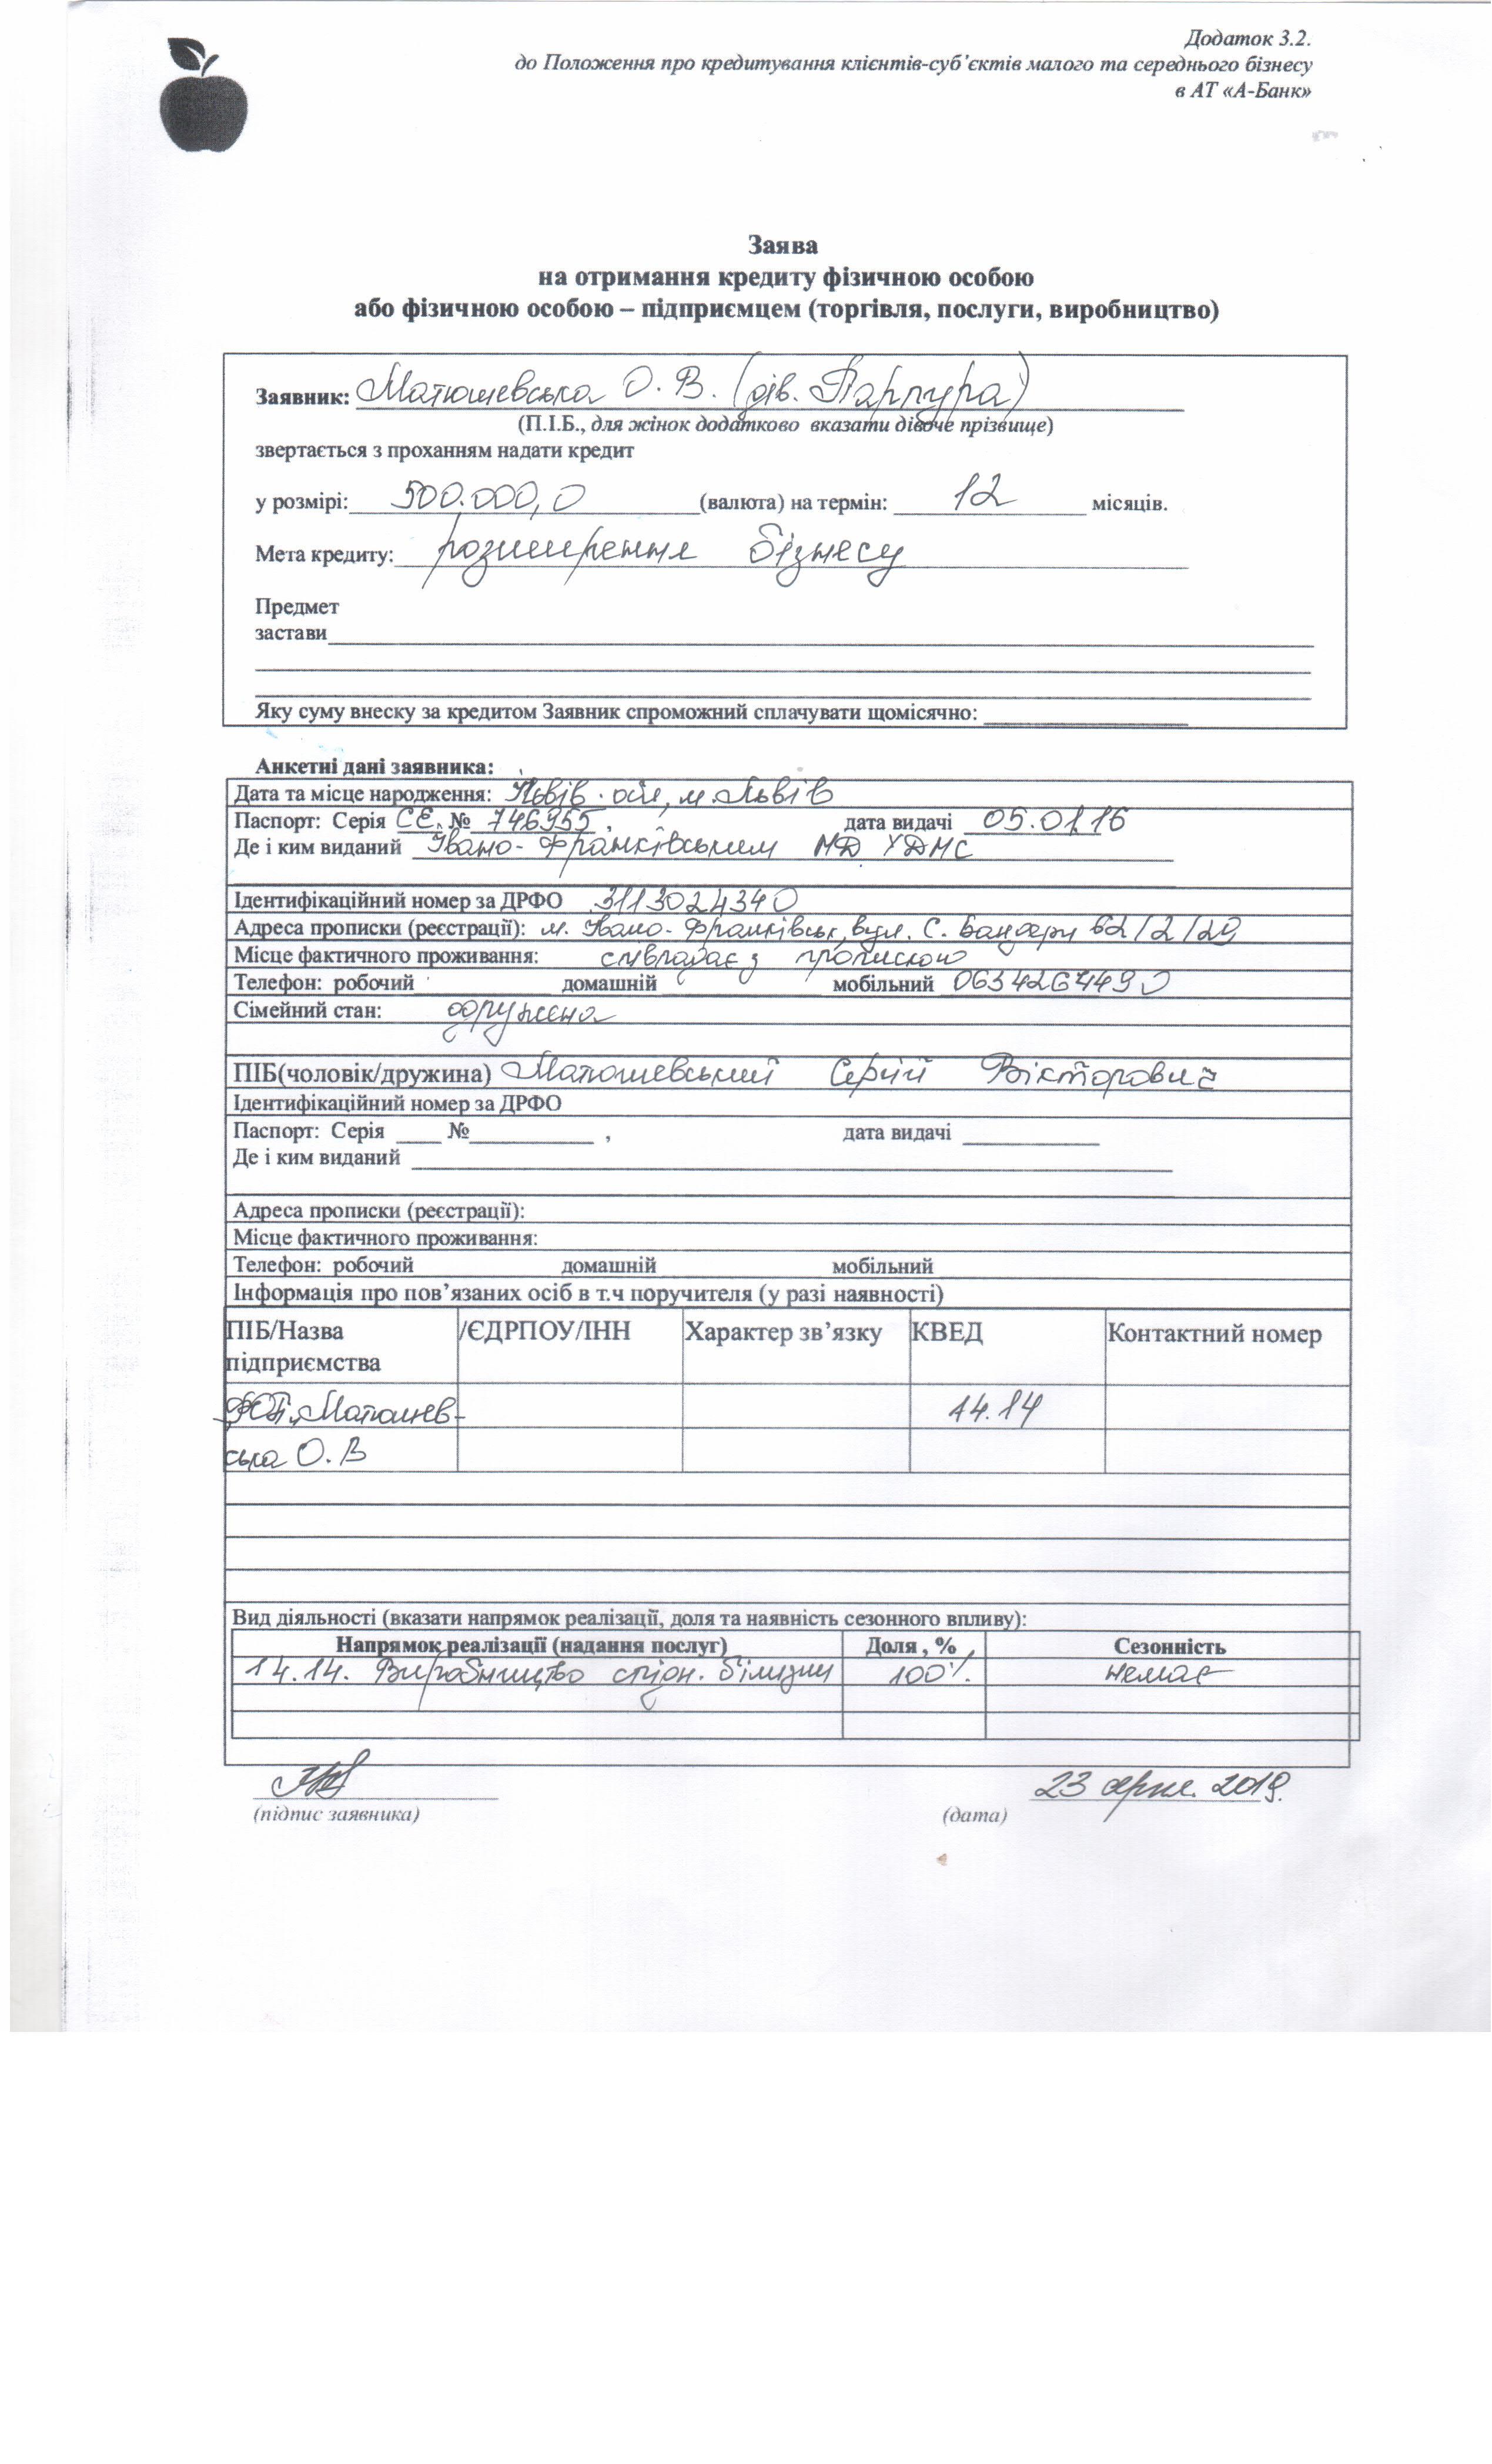 Додаток 3.2.
до Положення про кредитування клієнтів-суб’єктів малого та середнього бізнесу
в АТ «А-Банк»
Заява
на отримання кредиту фізичною особою
або фізичною особою – підприємцем (торгівля, послуги, виробництво)
Заявник: Матюшевська О. В. (дів. Парпура)
(П.І.Б., для жінок додатково вказати дівоче прізвище)
звертається з проханням надати кредит
у розмірі: 500.000,0 (валюта) на термін: 12 місяців.
Мета кредиту: розширення бізнесу
Предмет
застави
Яку суму внеску за кредитом Заявник спроможний сплачувати щомісячно:
Анкетні дані заявника:
Дата та місце народження: Львів. обл, м. Львів
Паспорт: Серія СЕ № 746955 , дата видачі 05.01.16
Де і ким виданий Івано-Франківським МВ УДМС
Ідентифікаційний номер за ДРФО 3113024340
Адреса прописки (реєстрації): м. Івано-Франківськ, вул. С. Бандери 62/2/29
Місце фактичного проживання: співпадає з пропискою
Телефон: робочий домашній мобільний 0634267490
Сімейний стан: одружена
ПІБ(чоловік/дружина) Матюшевський Сергій Вікторович
Ідентифікаційний номер за ДРФО
Паспорт: Серія № , дата видачі
Де і ким виданий
Адреса прописки (реєстрації):
Місце фактичного проживання:
Телефон: робочий домашній мобільний
Інформація про пов’язаних осіб в т.ч поручителя (у разі наявності)
ПІБ/Назва /ЄДРПОУ/ІНН Характер зв’язку КВЕД Контактний номер
підприємства
ФОП Матюшев- 14.14
ська О. В
Вид діяльності (вказати напрямок реалізації, доля та наявність сезонного впливу):
Напрямок реалізації (надання послуг) Доля , % Сезонність
14.14. Виробництво спідн. білизни 100% немає
23 серпн. 2019.
(підпис заявника) (дата)